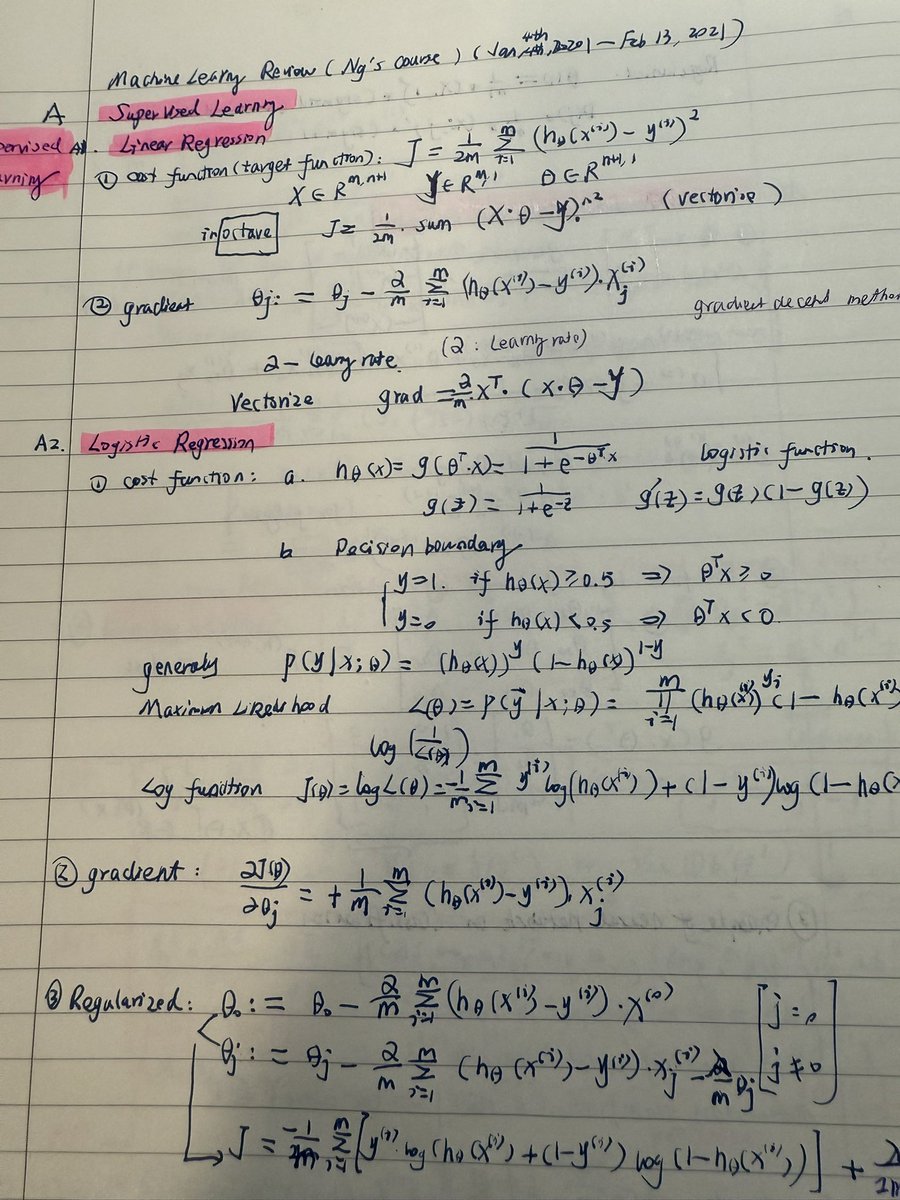 Machine Learny Review (Ng's course) (Jan, 4th, 2020 – Feb 13, 2021)
A Supervised Learning
A1. Linear Regression
① cost function (target function): J = 1/2m Σ_{i=1}^{m} (hθ(x^(i)) − y^(i))^2
X ∈ R^{m, n+1} y ∈ R^{m, 1} θ ∈ R^{n+1, 1}
in octave J = 1/2m · sum (X·θ − y).^2 (vectorize)
② gradient θj := θj − α/m Σ_{i=1}^{m} (hθ(x^(i)) − y^(i))·xj^(i)
gradient decent method
α – learny rate (α : Learny rate)
Vectorize grad = α/m · X^T · (X·θ − y)
A2. Logistic Regression
① cost function: a. hθ(x) = g(θ^T·x) = 1/(1+e^{−θ^T x}) Logistic function.
g(z) = 1/(1+e^{−z}) g'(z) = g(z)(1−g(z))
b Decision boundary
y=1. if hθ(x) ≥ 0.5 ⇒ θ^T x ≥ 0
y=0 if hθ(x) < 0.5 ⇒ θ^T x < 0
generaly p(y|x;θ) = (hθ(x))^y (1−hθ(x))^{1−y}
Maximum Likelihood L(θ) = p(y⃗|x;θ) = Π_{i=1}^{m} (hθ(x^(i)))^{yi} (1 − hθ(x^(i)
log (1/L(θ))
Log function J(θ) = log L(θ) = −1/m Σ_{i=1}^{m} y^(i) log(hθ(x^(i))) + (1 − y^(i)) log (1 − hθ(x
② gradient: ∂J(θ)/∂θj = + 1/m Σ_{i=1}^{m} (hθ(x^(i)) − y^(i)). xj^(i)
③ Regularized: θ0 := θ0 − α/m Σ_{i=1}^{m} (hθ(x^(i)) − y^(i))·x^(0) [j=0
θj := θj − α/m Σ_{i=1}^{m} (hθ(x^(i)) − y^(i))·xj^(i) − λ/m θj j≠0]
J = −1/m Σ_{i=1}^{m} [y^(i)·log(hθ(x^(i)) + (1−y^(i)) log (1−hθ(x^(i)))] + λ/2m